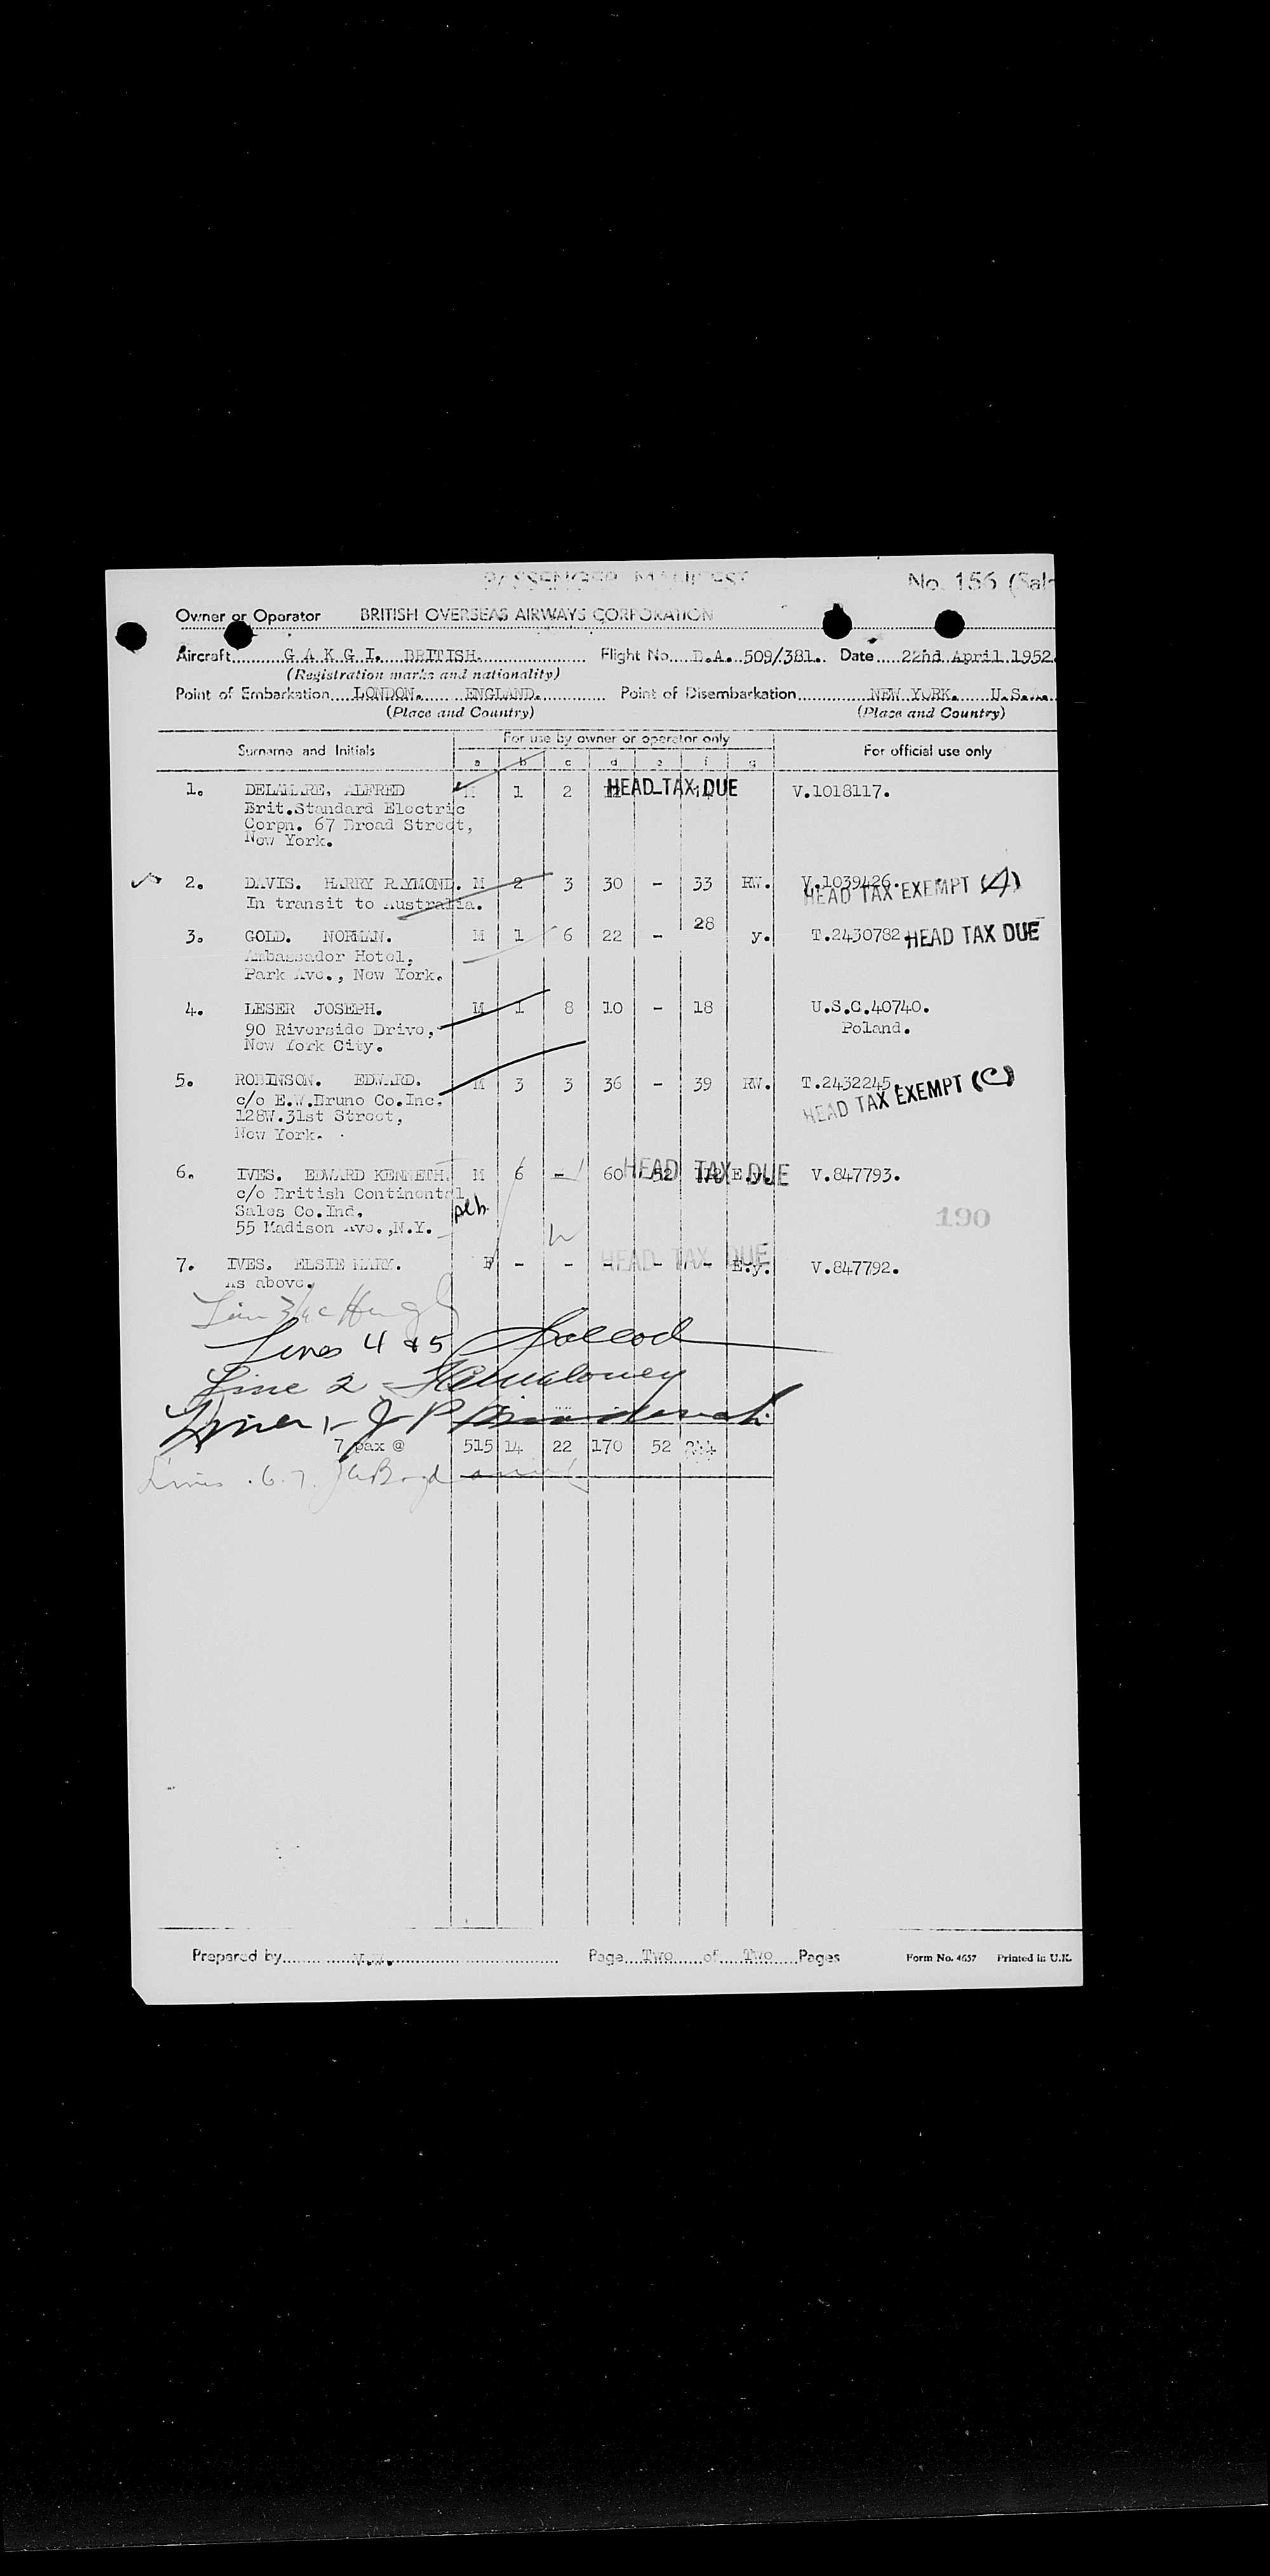 PASSENGER MANIFEST No. 156 (Sale
Owner or Operator BRITISH OVERSEAS AIRWAYS CORPORATION
Aircraft G A K G I. BRITISH. Flight No. B.A. 509/381. Date 22nd April 1952.
(Registration marks and nationality)
Point of Embarkation LONDON. ENGLAND. Point of Disembarkation NEW YORK. U.S.A.
(Place and Country) (Place and Country)
Surname and Initials For use by owner or operator only For official use only
a b c d e f g
1. DELAMARE, ALFRED M 1 2 HEAD TAX DUE V.1018117.
Brit.Standard Electric
Corpn. 67 Broad Street,
New York.
2. DAVIS. HARRY RAYMOND. M 2 3 30 - 33 RW. V.1039426.
In transit to Australia. HEAD TAX EXEMPT (A)
3. GOLD. NORMAN. M 1 6 22 - 28 y. T.2430782 HEAD TAX DUE
Ambassador Hotel,
Park Ave., New York.
4. LESER JOSEPH. M 1 8 10 - 18 U.S.C.40740.
90 Riverside Drive, Poland.
New York City.
5. ROBINSON. EDWARD. M 3 3 36 - 39 RW. T.2432245.
c/o E.W.Bruno Co.Inc. HEAD TAX EXEMPT (C)
128W.31st Street,
New York.
6. IVES. EDWARD KENNETH. M 6 - 60 52 112 E.y. HEAD TAX DUE V.847793.
c/o British Continental
Sales Co.Ind.
55 Madison Ave.,N.Y. 190
7. IVES. ELSIE MARY. F - - - - - E.y. HEAD TAX DUE V.847792.
As above.
Line 3
Lines 4 & 5
Line 2 -
Line 1 - J P
7 pax @ 515 14 22 170 52 244
Lines . 6. 7.
Prepared by V.W. Page Two of Two Pages Form No. 4657 Printed in U.K.